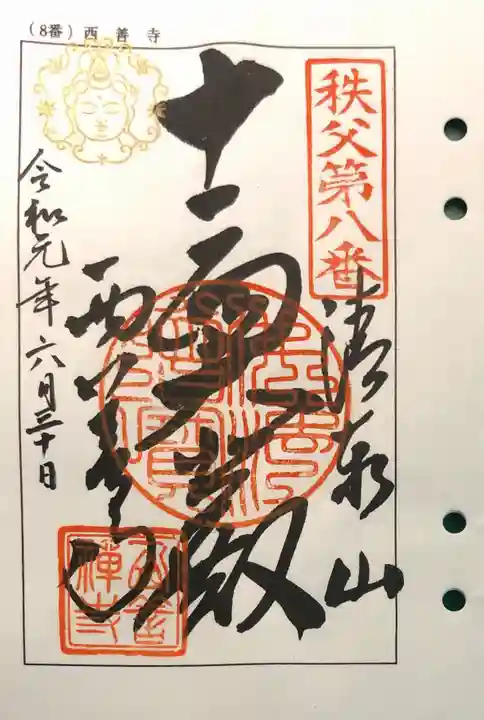 (8番) 西善寺
秩父第八番
清泰山
十一面殿
西善寺
令和元年六月三十日
西善禅寺